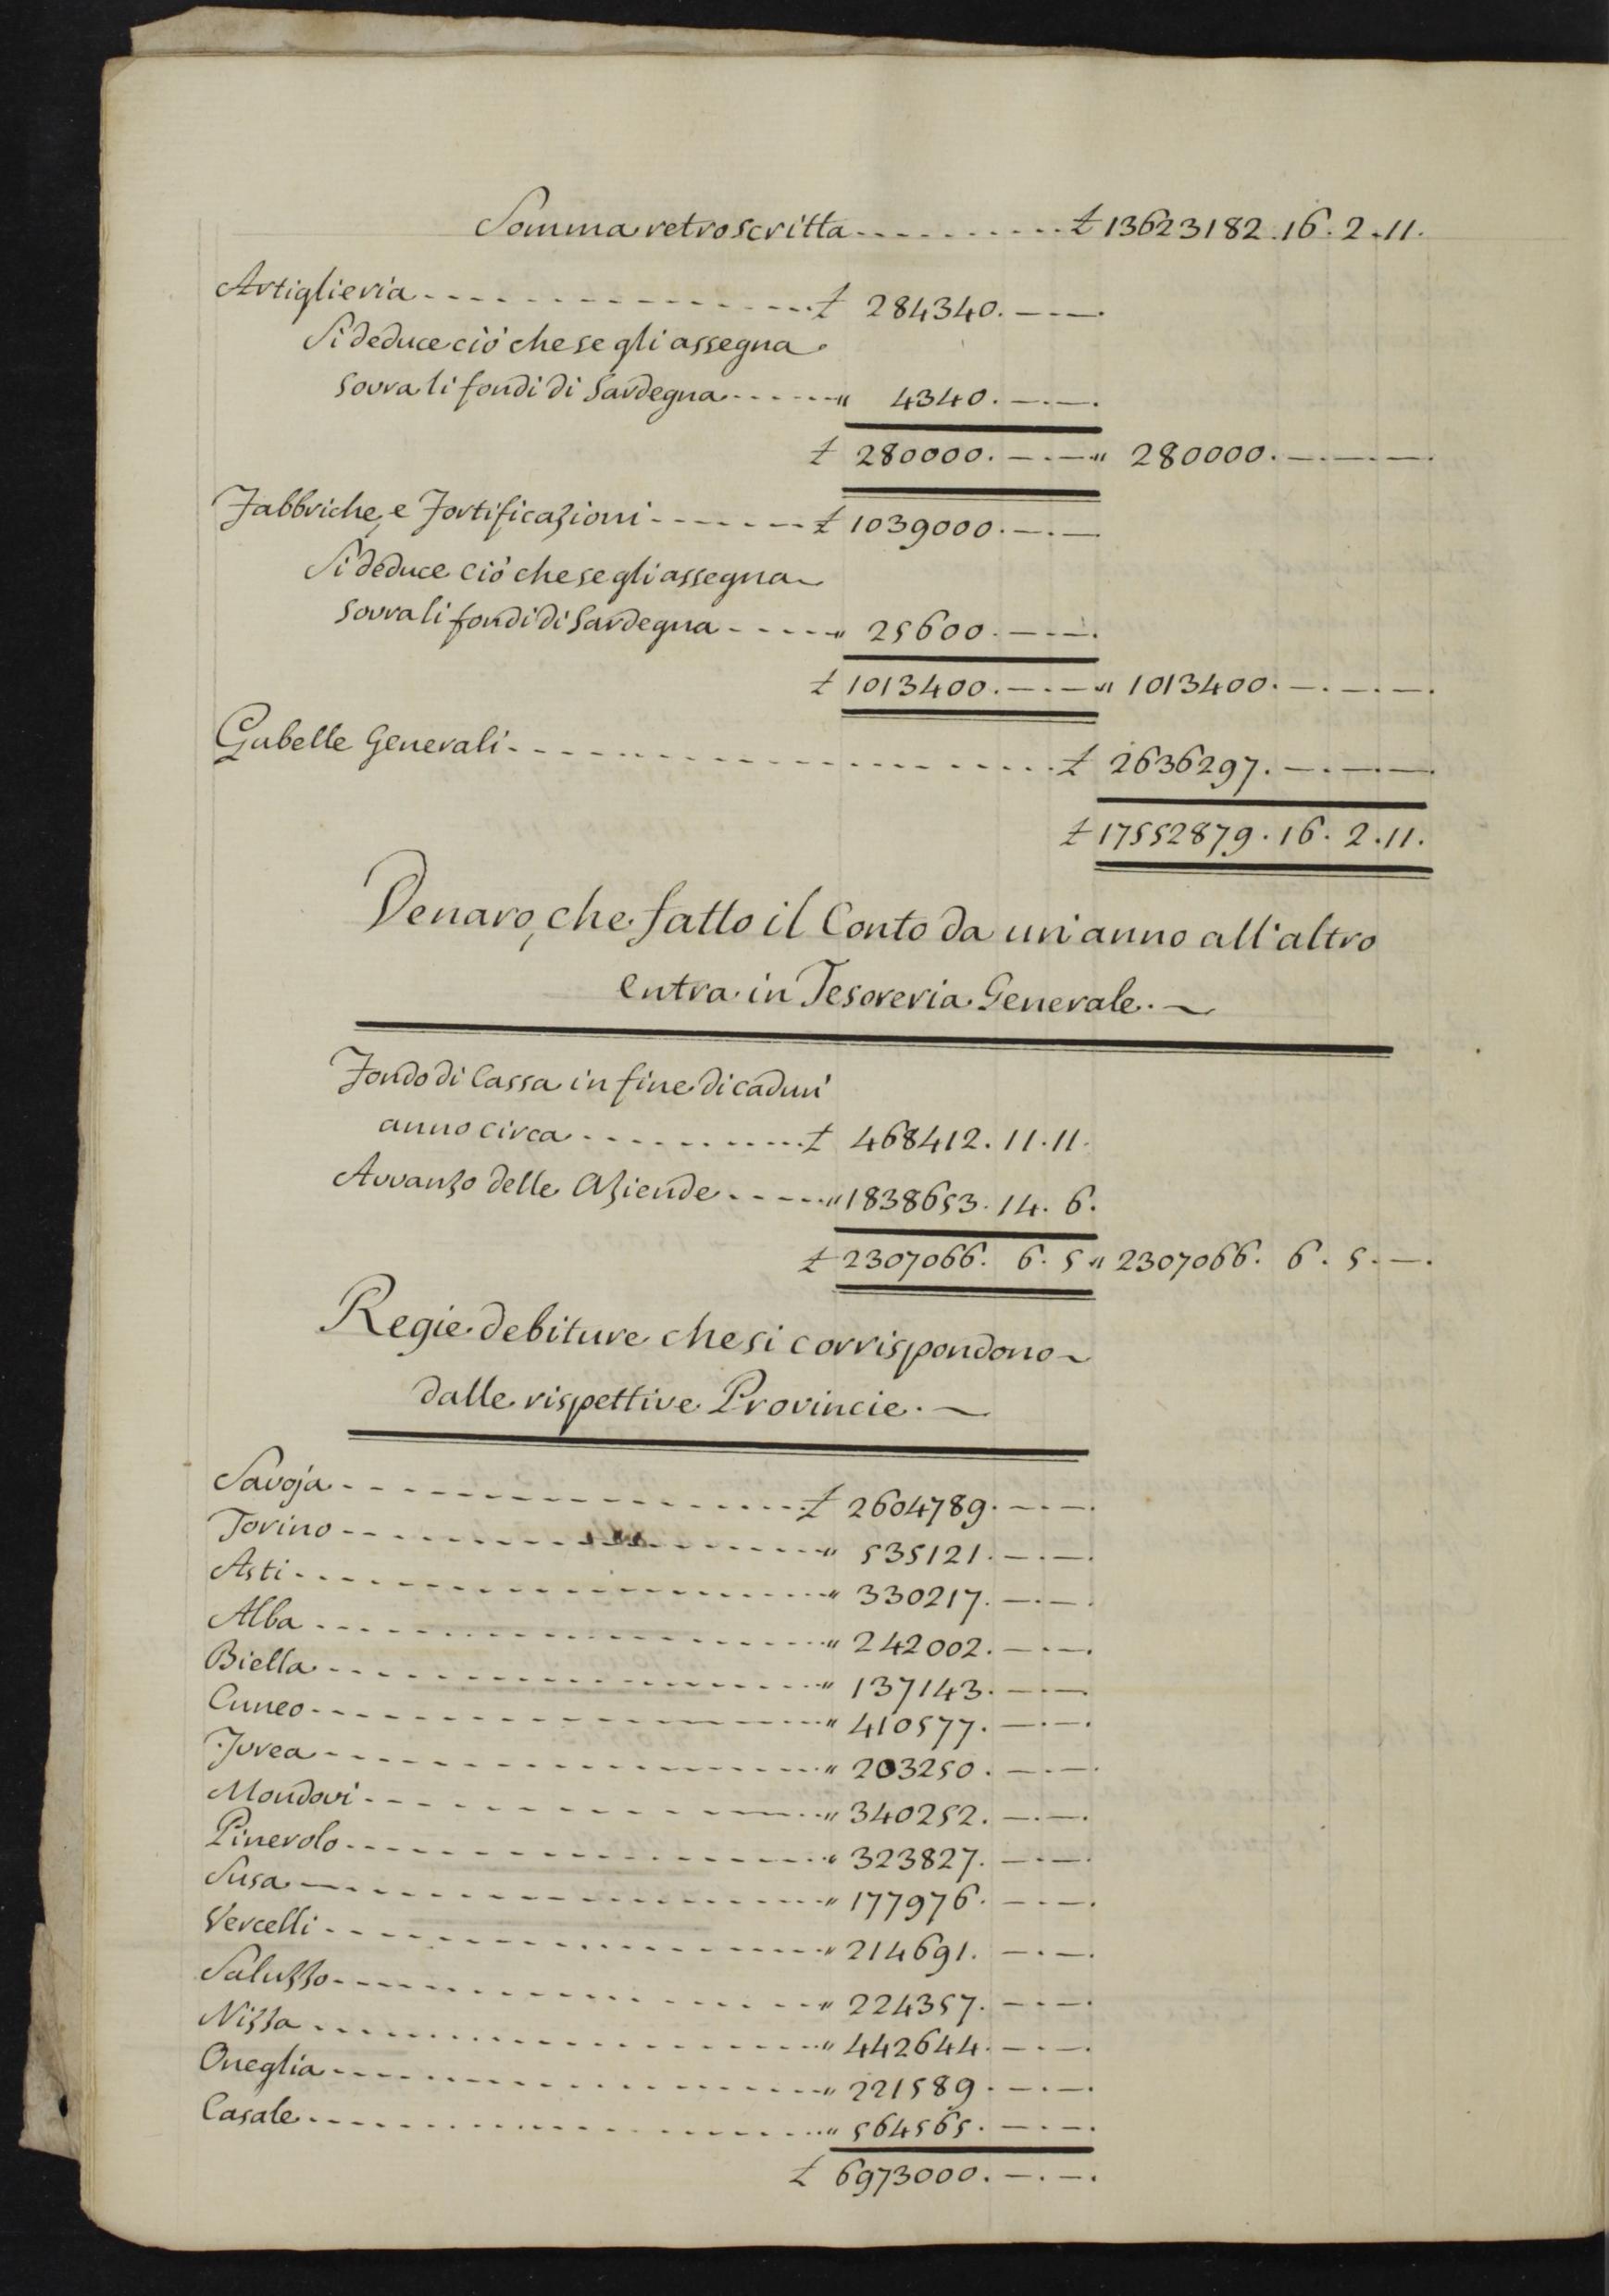 Somma retroscritta . . . . . . . . . . £ 13623182 . 16 . 2 . 11 .
Artiglieria . . . . . . . . . . £ 284340. —.—.
Si deduce ciò che se gli assegna
sovra li fondi di Sardegna . . . . . . " 4340. —.—.
£ 280000. —.— " 280000. —.—.—.
Fabbriche, e Fortificazioni . . . . . . . £ 1039000. —.—
Si deduce ciò che se gli assegna
sovra li fondi di Sardegna . . . . . " 25600. —.—.
£ 1013400. —.— " 1013400. —.—.—.
Gabelle Generali . . . . . . . . . . £ 2636297. —.—.—.
£ 17552879 . 16 . 2 . 11 .
Denaro, che fatto il Conto da un' anno all' altro
entra in Tesoreria Generale. —
Fondo di Cassa in fine di cadun'
anno circa . . . . . . . . . . £ 468412 . 11 . 11 .
Avvanzo delle Aziende . . . . . " 1838653 . 14 . 6 .
£ 2307066 . 6 . 5 " 2307066 . 6 . 5 . — .
Regie debiture che si corrispondono
dalle rispettive Provincie. —
Savoja . . . . . . . . . . £ 2604789. —.—.
Torino . . . . . . . . . . " 535121. —.—.
Asti . . . . . . . . . . " 330217. —.—.
Alba . . . . . . . . . . " 242002. —.—.
Biella . . . . . . . . . . " 137143. —.—
Cuneo . . . . . . . . . . " 410577. —.—.
Ivrea . . . . . . . . . . " 203250. —.—.
Mondovi . . . . . . . . . . " 340252. —.—.
Pinerolo . . . . . . . . . . " 323827. —.—.
Susa . . . . . . . . . . " 177976. —.—.
Vercelli . . . . . . . . . . " 214691. —.—.
Saluzzo . . . . . . . . . . " 224357. —.—.
Nizza . . . . . . . . . . " 442644. —.—.
Oneglia . . . . . . . . . . " 221589. —.—.
Casale . . . . . . . . . . " 564565. —.—.
£ 6973000. —.—.